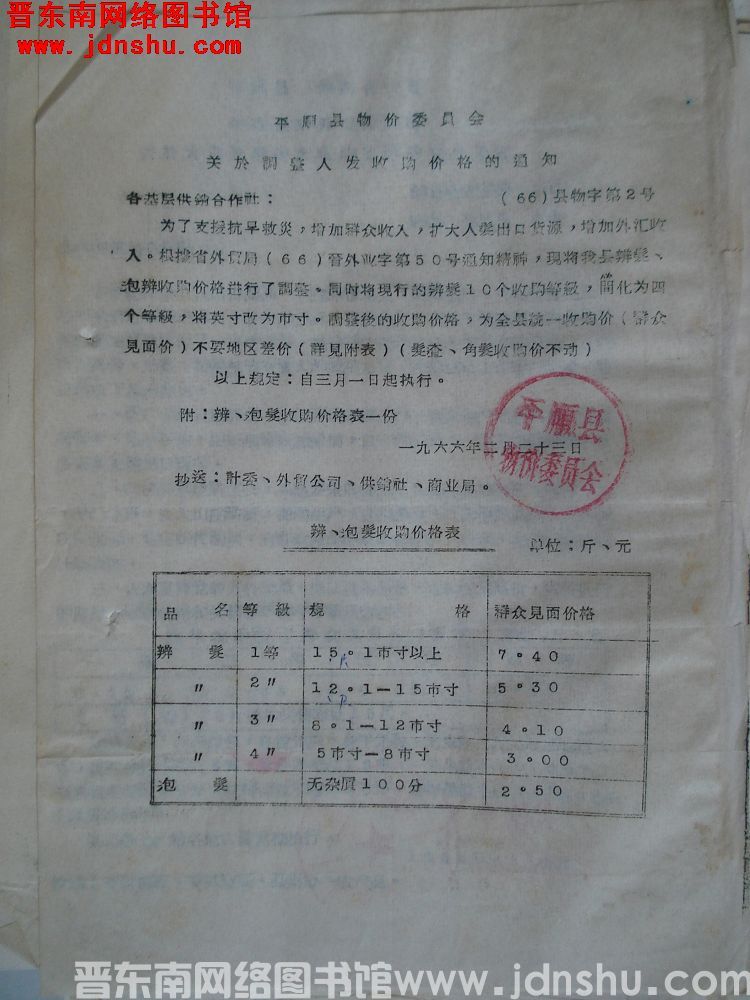 晋东南网络图书馆
www.jdnshu.com
平顺县物价委員会
关於調整人发收购价格的通知
各基层供銷合作社：
(66)县物字第2号
为了支援抗旱救災，增加群众收入，扩大人髮出口貨源，增加外汇收
入。根據省外貿局(66)晋外业字第50号通知精神，現将我县辫髮、
泡辫收购价格进行了調整。同时将現行的辫髮10个收购等級，簡化为四
个等級，将英寸改为市寸。調整後的收购价格，为全县統一收购价(羣众
見面价)不要地区差价(詳見附表)(髮渣、角髮收购价不动)
以上規定：自三月一日起执行。
附：辫、泡髮收购价格表一份
一九六六年二月二十三日
平顺县
物价委員会
抄送：計委、外貿公司、供銷社、商业局。
辫、泡髮收购价格表
单位：斤、元
品 名 等 級 規 格 羣众見面价格
辫 髮 1等 15。1市寸以上 7。40
〃 2〃 12。1—15市寸 5。30
〃 3〃 8。1—12市寸 4。10
〃 4〃 5市寸—8市寸 3。00
泡 髮 无杂质100分 2。50
晋东南网络图书馆www.jdnshu.com